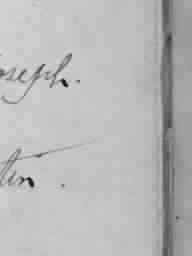 oseph.
tin.